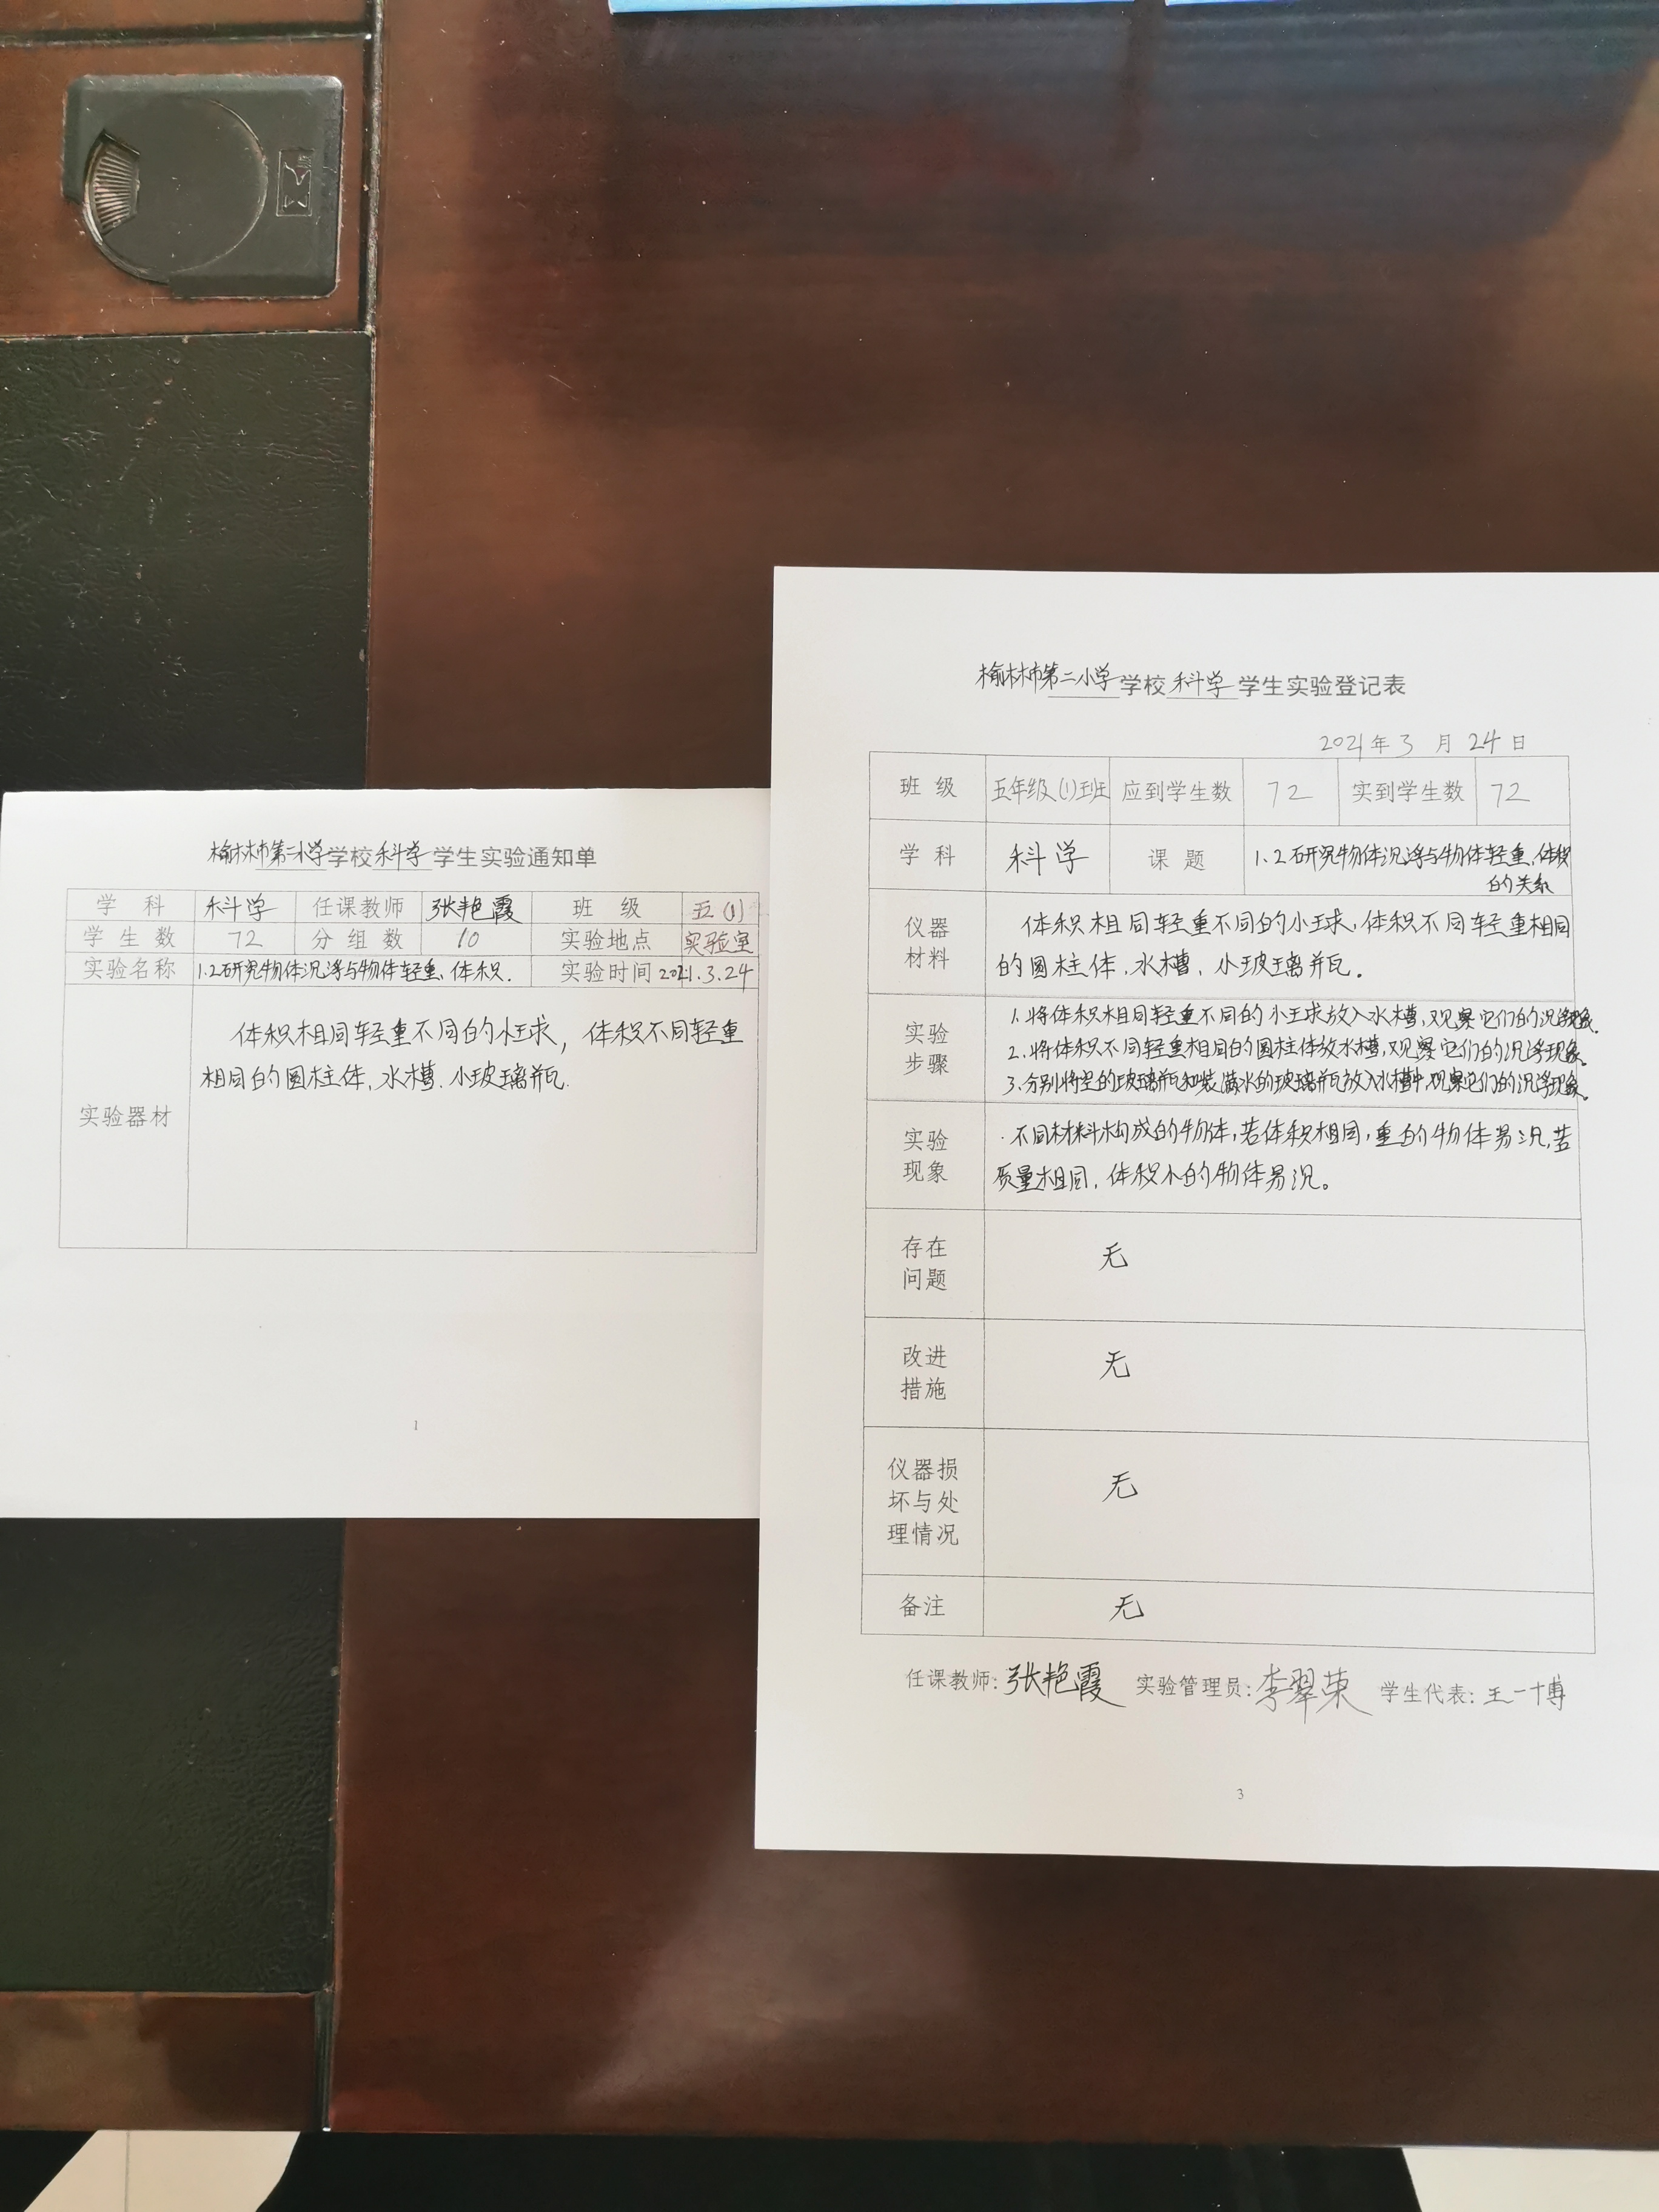 榆林市第二小学学校科学学生实验通知单
学 科 科学 任课教师 张艳霞 班 级 五(1)
学 生 数 72 分 组 数 10 实验地点 实验室
实验名称 1.2研究物体沉浮与物体轻重、体积. 实验时间 2021.3.24
实验器材
体积相同轻重不同的小球，体积不同轻重
相同的圆柱体、水槽、小玻璃瓶.
1
榆林市第二小学学校科学学生实验登记表
2021年 3 月 24 日
班 级 五年级(1)班 应到学生数 72 实到学生数 72
学 科 科学 课 题 1.2研究物体沉浮与物体轻重、体积
的关系
仪器
材料
体积相同轻重不同的小球，体积不同轻重相同
的圆柱体、水槽、小玻璃瓶。
实验
步骤
1.将体积相同轻重不同的小球放入水槽，观察它们的沉浮现象。
2.将体积不同轻重相同的圆柱体放水槽，观察它们的沉浮现象。
3.分别将空的玻璃瓶和装满水的玻璃瓶放入水槽中，观察它们的沉浮现象。
实验
现象
不同材料构成的物体，若体积相同，重的物体易沉，若
质量相同，体积小的物体易沉。
存在
问题
无
改进
措施
无
仪器损
坏与处
理情况
无
备注 无
任课教师：张艳霞 实验管理员：李翠荣 学生代表：王一博
3